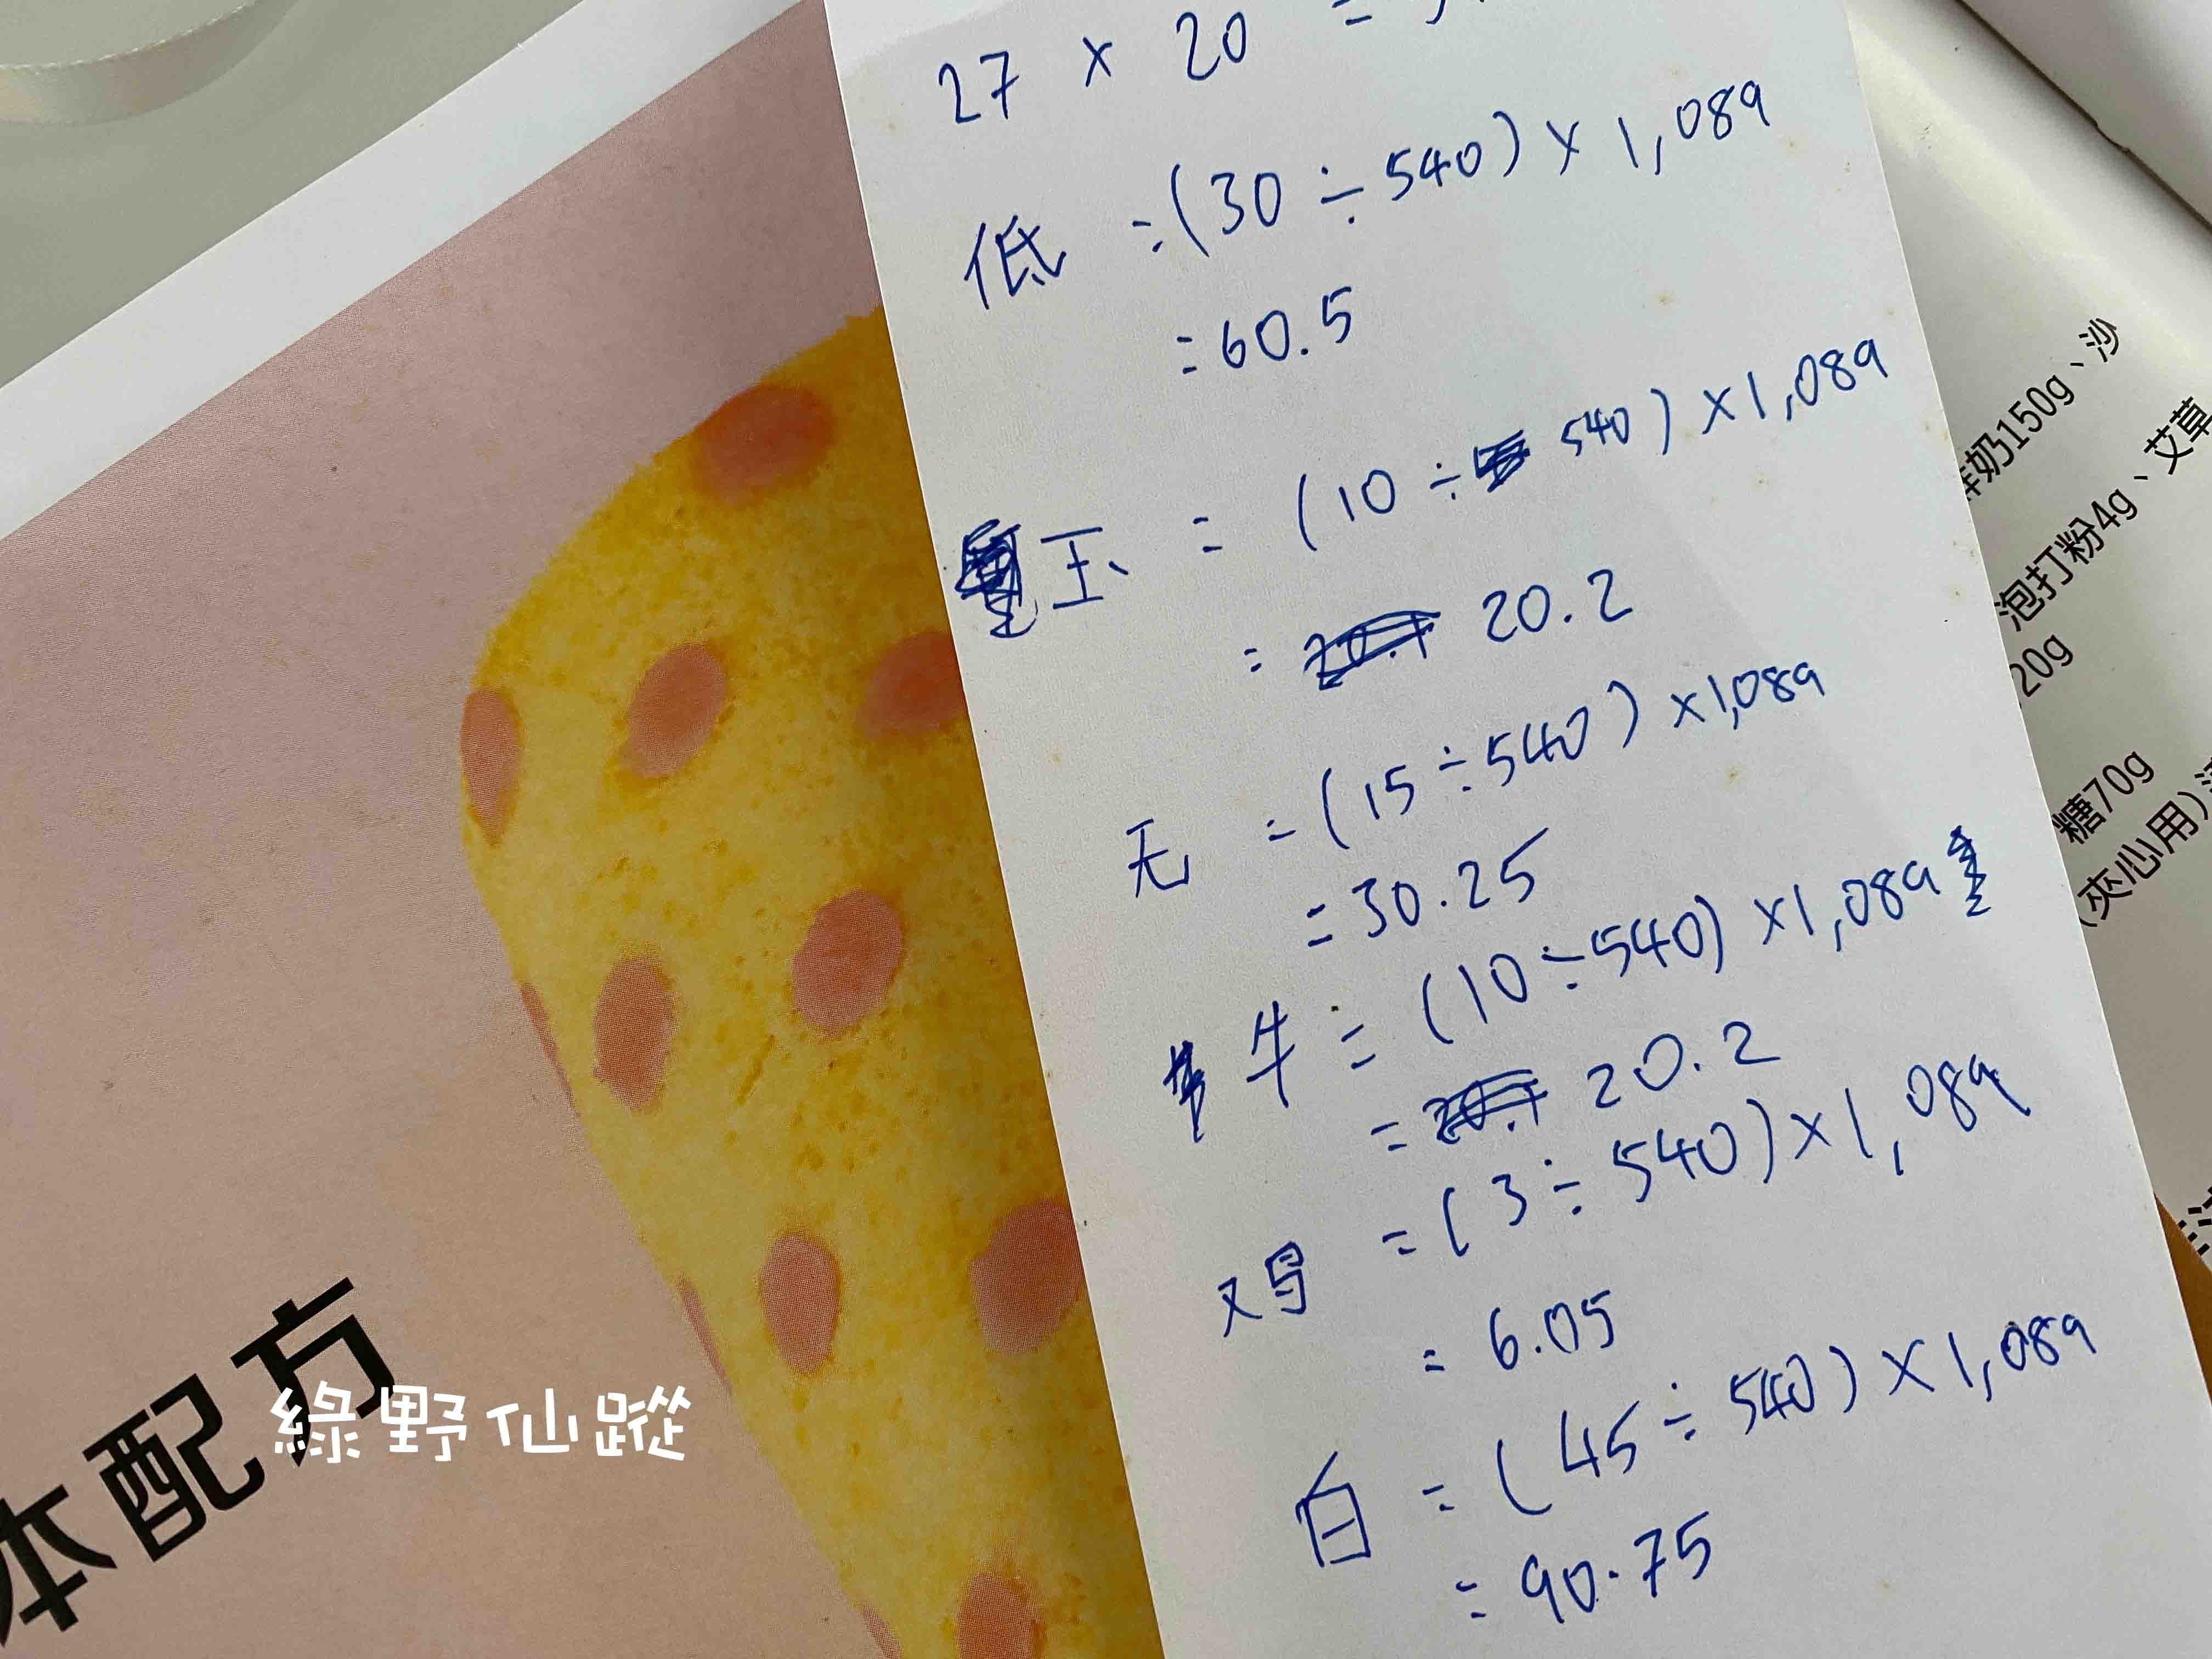 27 × 20 =
低 =(30 ÷ 540) × 1,089
=60.5
玉 = (10 ÷ 540) × 1,089
= 20.2
无 = (15 ÷ 540) × 1,089
= 30.25
牛 = (10 ÷ 540) × 1,089
= 20.2
= (3 ÷ 540) × 1,089
= 6.05
白 = (45 ÷ 540) × 1,089
= 90.75
本配方
綠野仙蹤
奶150g、沙
泡打粉4g、艾草
20g
糖70g
(夾心用)